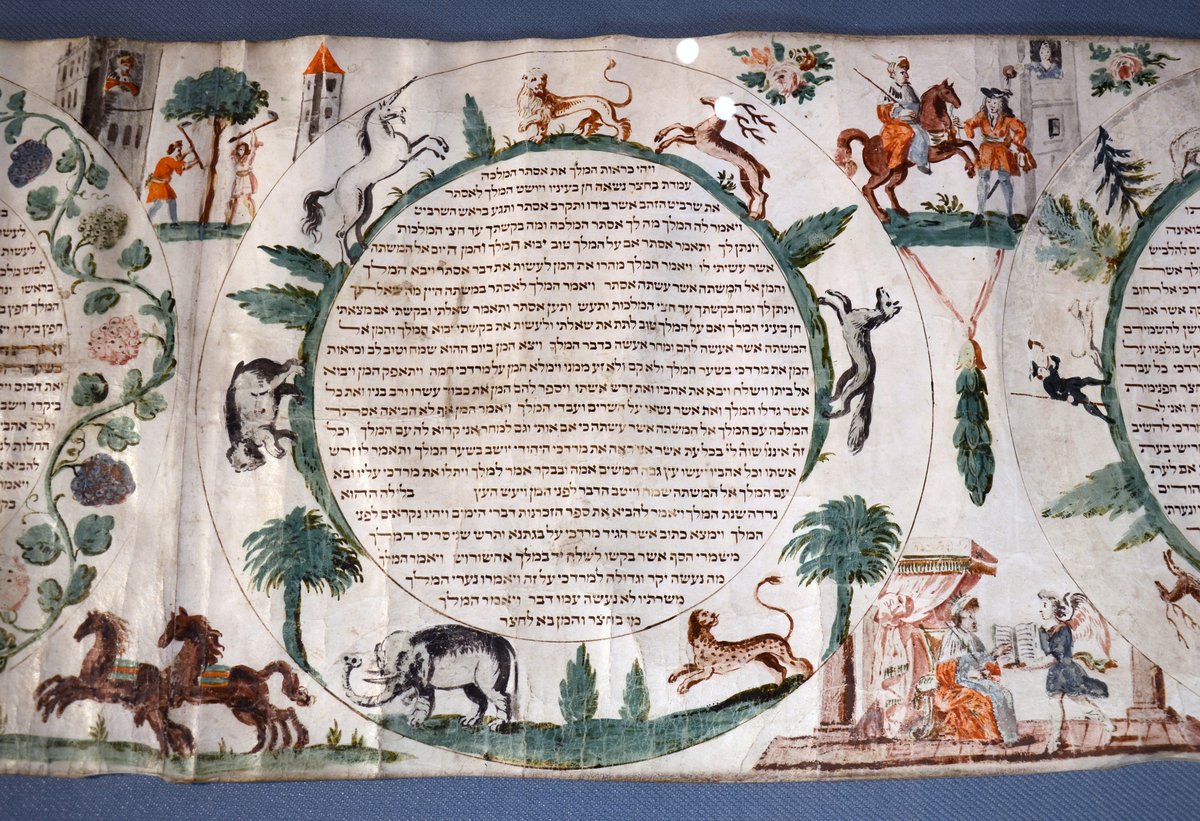 ויהי כראות המלך את אסתר המלכה
עמדת בחצר נשאה חן בעיניו ויושט המלך לאסתר
את שרביט הזהב אשר בידו ותקרב אסתר ותגע בראש השרביט
ויאמר לה המלך מה לך אסתר המלכה ומה בקשתך עד חצי המלכות
וינתן לך ותאמר אסתר אם על המלך טוב יבוא המלך והמן היום אל המשתה
אשר עשיתי לו ויאמר המלך מהרו את המן לעשות את דבר אסתר ויבא המלך
והמן אל המשתה אשר עשתה אסתר ויאמר המלך לאסתר במשתה היין מה שאלתך
וינתן לך ומה בקשתך עד חצי המלכות ותעש ותען אסתר ותאמר שאלתי ובקשתי אם מצאתי
חן בעיני המלך ואם על המלך טוב לתת את שאלתי ולעשות את בקשתי יבוא המלך והמן אל
המשתה אשר אעשה להם ומחר אעשה כדבר המלך ויצא המן ביום ההוא שמח וטוב לב וכראות
המן את מרדכי בשער המלך ולא קם ולא זע ממנו וימלא המן על מרדכי חמה ויתאפק המן ויבוא
אל ביתו וישלח ויבא את אהביו ואת זרש אשתו ויספר להם המן את כבוד עשרו ורב בניו ואת כל
אשר גדלו המלך ואת אשר נשאו על השרים ועבדי המלך ויאמר המן אף לא הביאה אסתר
המלכה עם המלך אל המשתה אשר עשתה כי אם אותי וגם למחר אני קרוא לה עם המלך וכל
זה איננו שוה לי בכל עת אשר אני ראה את מרדכי היהודי יושב בשער המלך ותאמר לו זרש
אשתו וכל אהביו יעשו עץ גבה חמשים אמה ובבקר אמר למלך ויתלו את מרדכי עליו ובא
עם המלך אל המשתה שמח וייטב הדבר לפני המן ויעש העץ בלילה ההוא
נדדה שנת המלך ויאמר להביא את ספר הזכרנות דברי הימים ויהיו נקראים לפני
המלך וימצא כתוב אשר הגיד מרדכי על בגתנא ותרש שני סריסי המלך
משמרי הסף אשר בקשו לשלוח יד במלך אחשורוש ויאמר המלך
מה נעשה יקר וגדולה למרדכי על זה ויאמרו נערי המלך
משרתיו לא נעשה עמו דבר ויאמר המלך
מי בחצר והמן בא לחצר